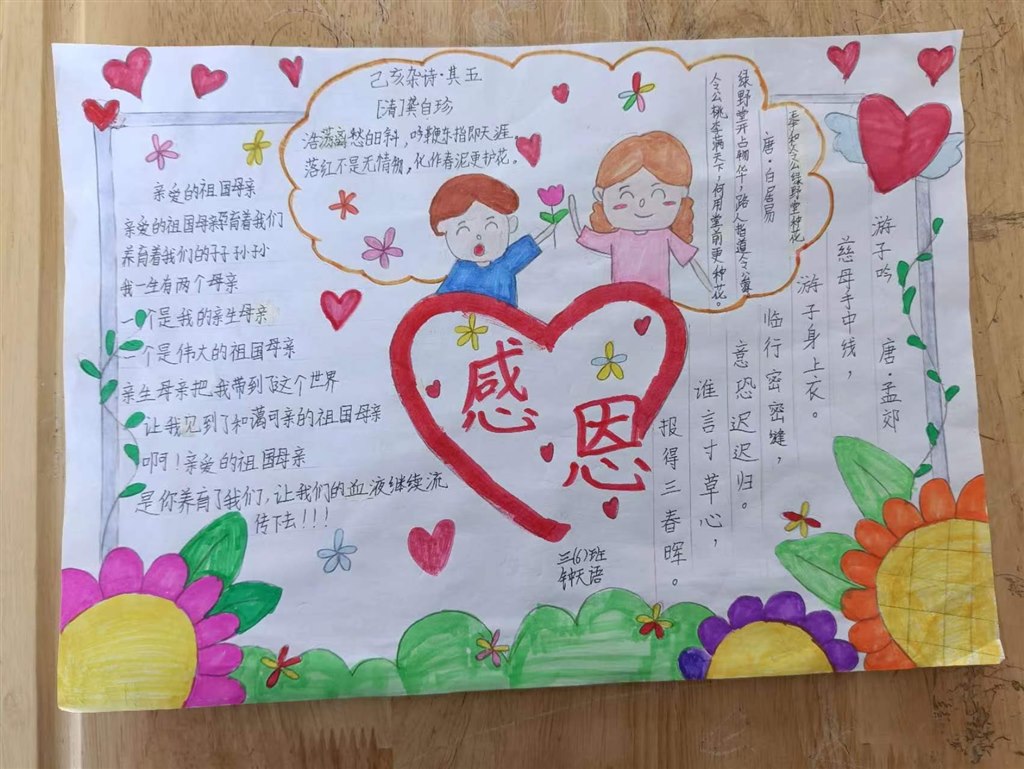 己亥杂诗·其五
[清]龚自珍
浩荡离愁白日斜，吟鞭东指即天涯。
落红不是无情物，化作春泥更护花。
奉和令公绿野堂种花
唐·白居易
绿野堂开占物华，路人指道令公家。
令公桃李满天下，何用堂前更种花。
亲爱的祖国母亲
亲爱的祖国母亲孕育着我们
养育着我们的子子孙孙
我一生有两个母亲
一个是我的亲生母亲
一个是伟大的祖国母亲
亲生母亲把我带到了这个世界
让我见到了和蔼可亲的祖国母亲
啊！亲爱的祖国母亲
是你养育了我们，让我们的血液继续流
传下去！！！
感恩
游子吟 唐·孟郊
慈母手中线，
游子身上衣。
临行密密缝，
意恐迟迟归。
谁言寸草心，
报得三春晖。
三(6)班
钟天语